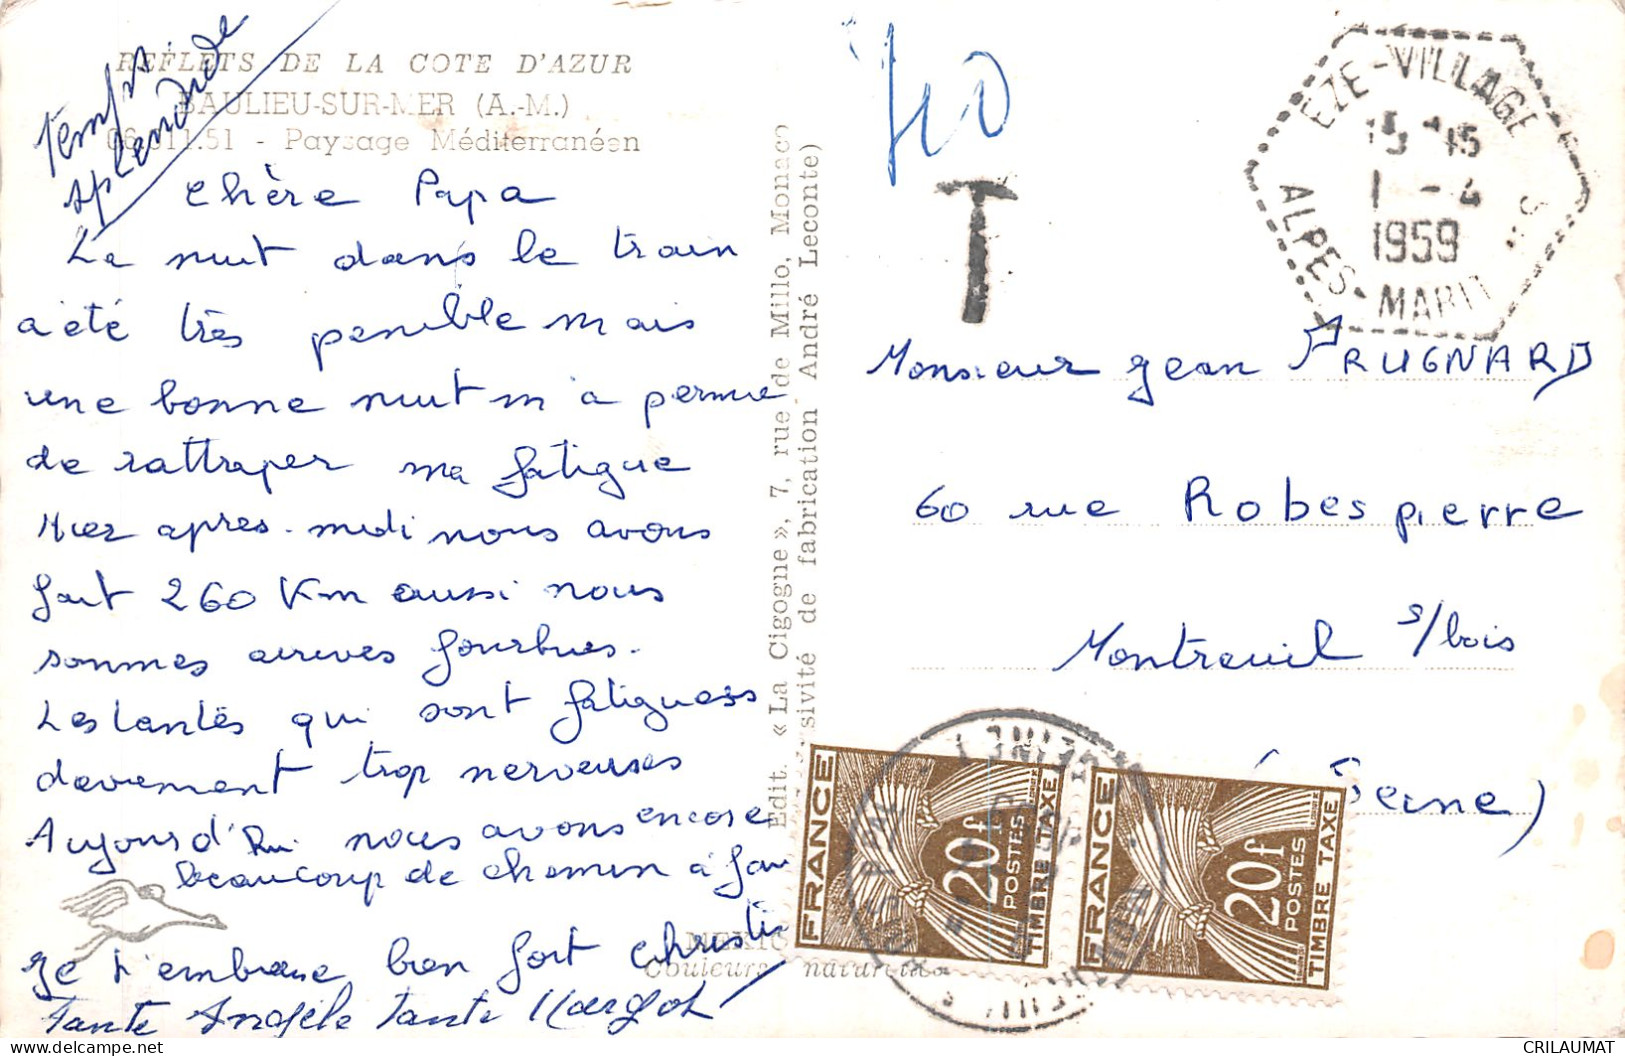 REFLETS DE LA COTE D'AZUR
BAULIEU-SUR-MER (A.-M.)
06.011.51 - Paysage Méditerranéen
Temps
splendide
Chère Papa
La nuit dans le train
a été très penible mais
une bonne nuit m'a permie
de rattraper ma fatigue
Hier apres-midi nous avons
fait 260 Km aussi nous
sommes arrives fourbues.
Les tantes qui sont fatiguess
deviement trop nerveuses
Aujourd'hui nous avons encore
beaucoup de chemin à fai
Je t'embrasse bien fort Christi
Tante Angèle Tante Margot
Edit. « La Cigogne », 7, rue de Millo, Monaco
sivité de fabrication André Leconte)
MEXIC
Couleurs naturelles
T
EZE-VILLAGE
15 15
1 - 4
1959
ALPES-MARIT
Monsieur Jean PRUGNARD
60 rue Robespierre
Montreuil s/bois
(Seine)
FRANCE
20f
POSTES
TIMBRE TAXE
FRANCE
20f
POSTES
TIMBRE TAXE
CRILAUMAT